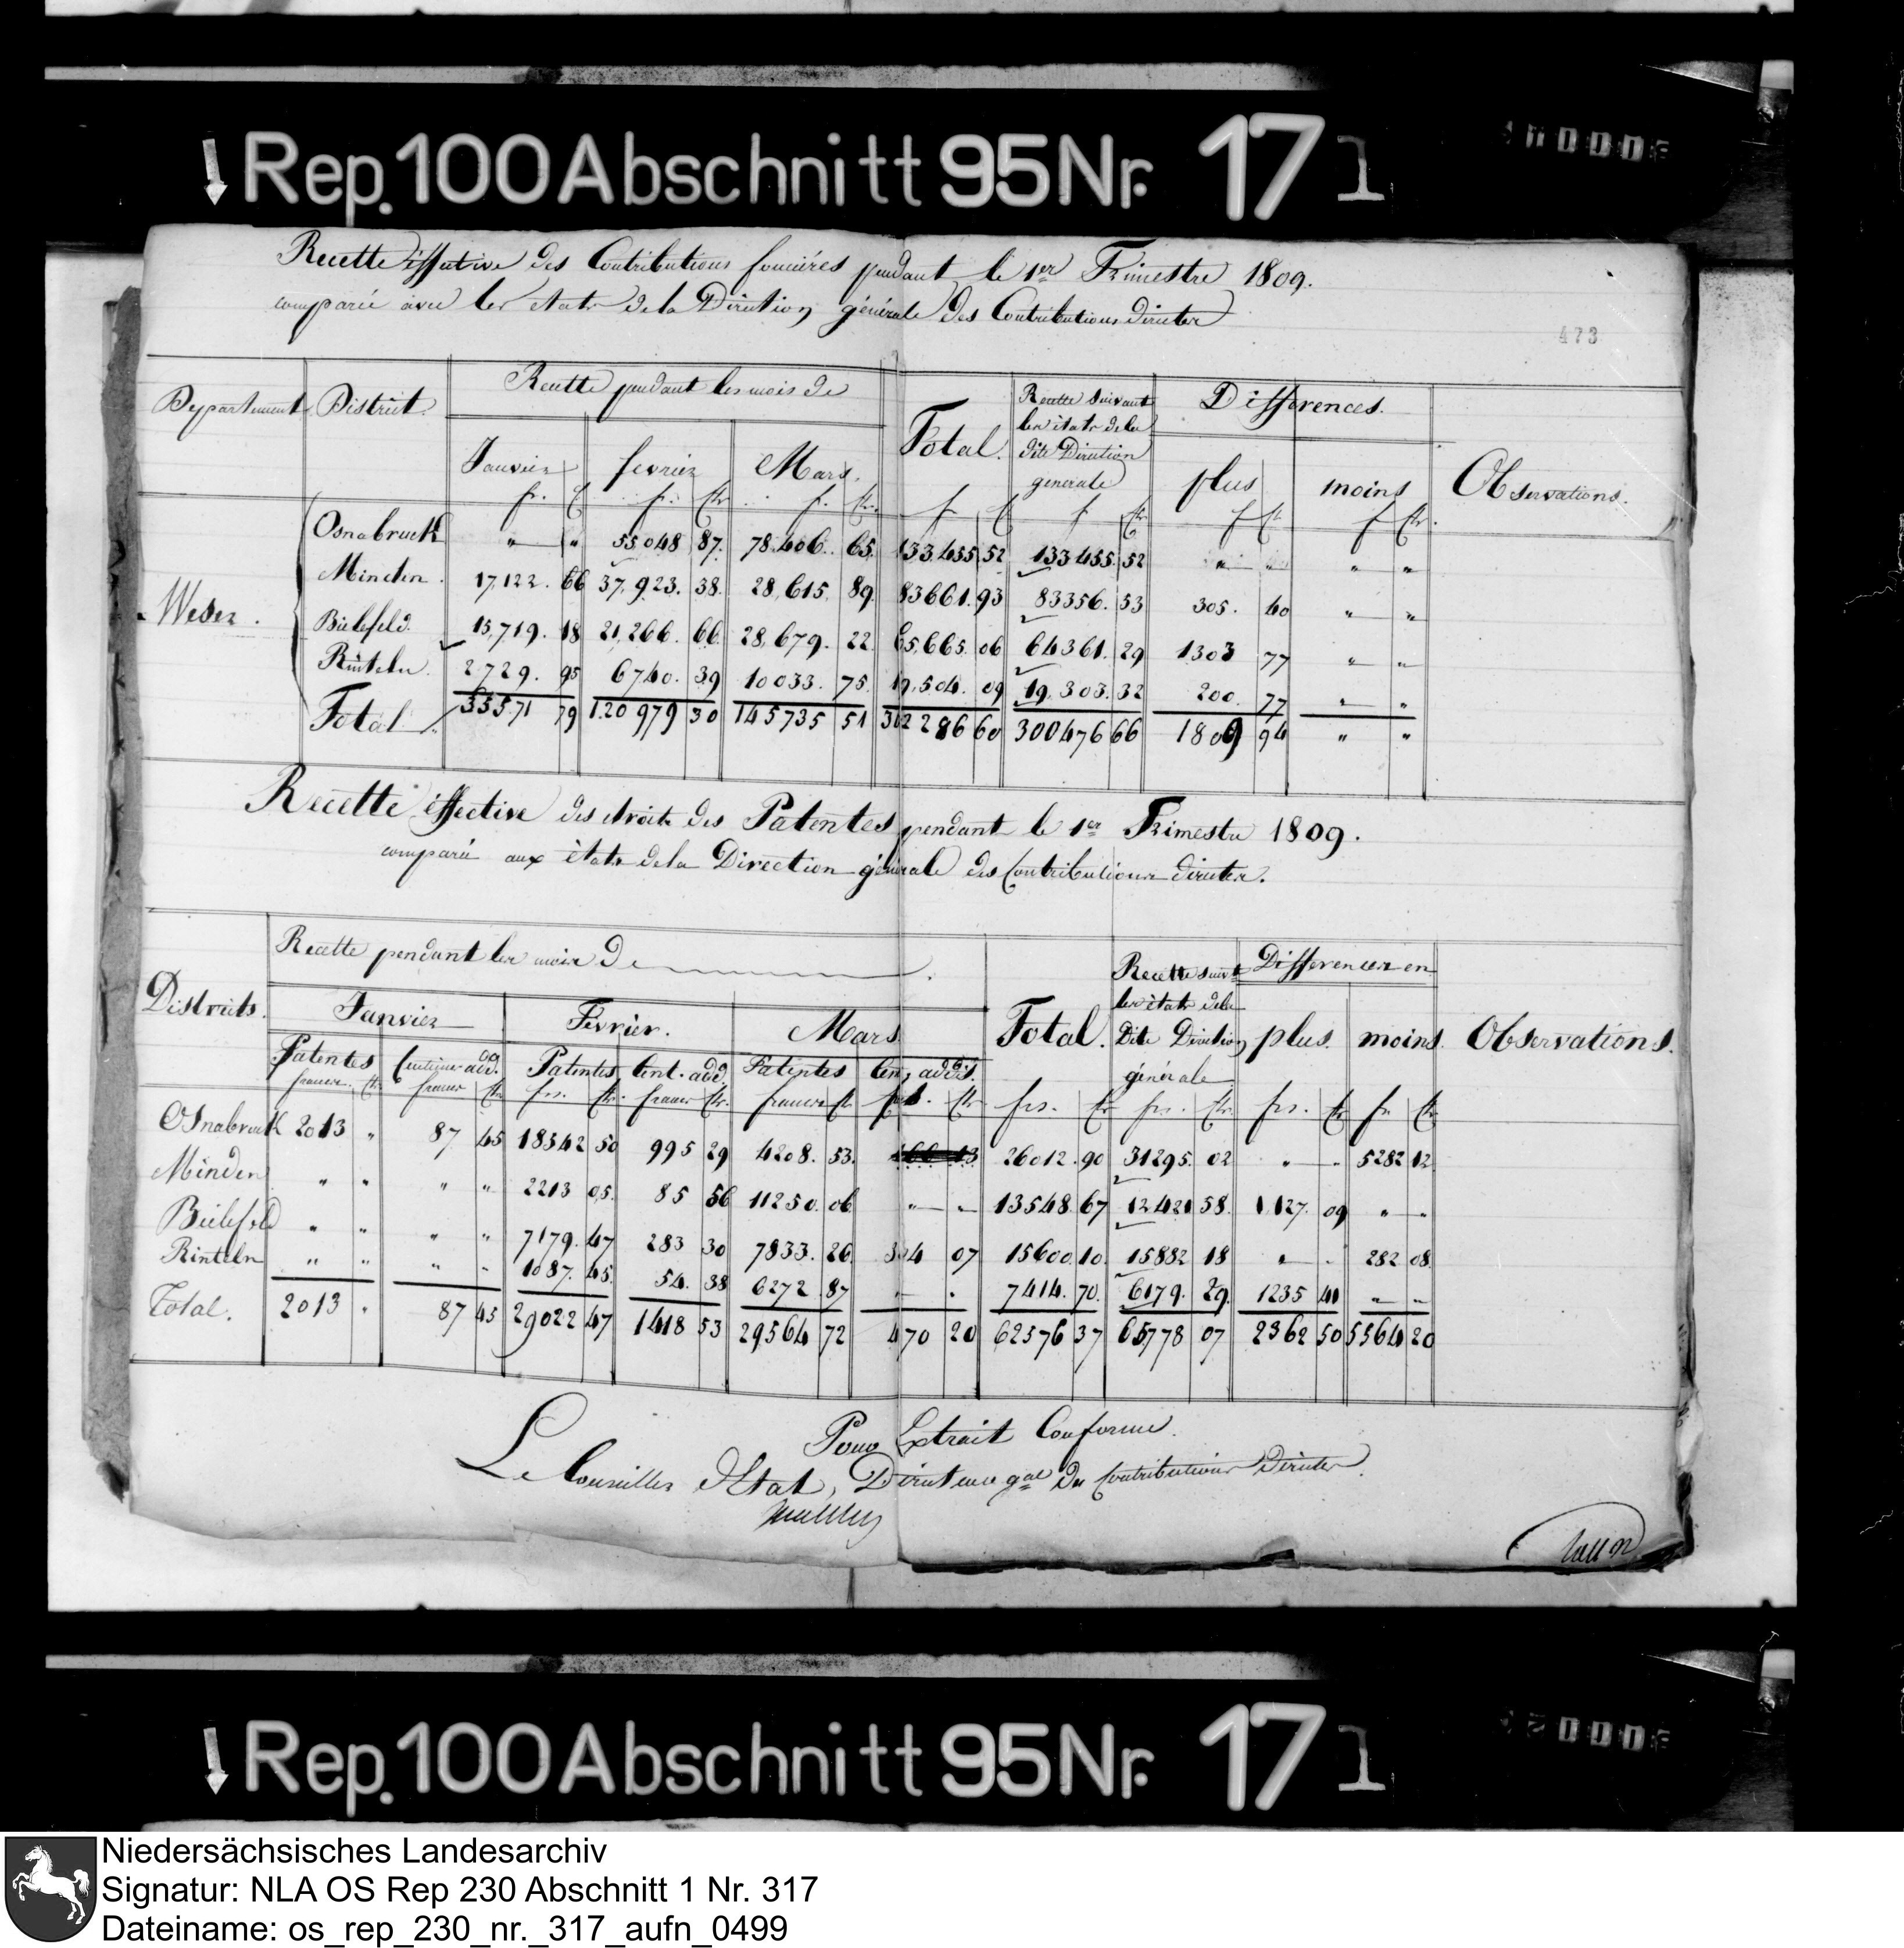 Rep. 100 Abschnitt 95 Nr. 17 1
Recette effective des Contributions foncières pendant le 1er Trimestre 1809.
comparée avec les etats de la Direction générale des Contributions directes
473
Departement District. Recette pendant les mois de Total. Recette suivant les états de la dite Direction generale Differences. Observations.
Janvier fevrier Mars. plus moins
fr. c fr. cts fr. cts. f c f cts f cts f cts.
Weser.
Osnabruck " " 55048 87. 78.406. 65. 133.455 52 133455. 52 " " " "
Minden. 17,122. 66 37,923. 38. 28,615. 89. 83661. 93 83356. 53 305. 40 " "
Bielefeld. 15,719. 18 21,266. 66. 28,679. 22. 65,665. 06 64361. 29 1303 77 " "
Rinteln. 2729. 95 6740. 39 10033. 75. 19,504. 09 19,303. 32 200. 77 " "
Total. 35571 79 120979 30 145735 51 302286 60 300476 66 1809 94 " "
Recette effective des droits des Patentes pendant le 1er Trimestre 1809.
comparée aux états de la Direction générale des Contributions directes.
Districts. Recette pendant les mois De Total. Recette suivt les états de la Dite Direction générale Differences en Observations.
Janvier Fevrier. Mars plus. moins.
Patentes Centimes add. Patentes Cent. add. Patentes Cent. addls.
francs. cts francs cts frs. cts. francs cts. francs cts cts. frs. cts frs. cts. frs. cts fr cts
Osnabruck 2013 " 87 45 18342 50 995 29 4208. 53. 26012. 90 31295. 02 " " 5282 12
Minden " " " " 2213 05. 85 56 11250. 06 " " 13548. 67 12421 58. 1127. 09 " "
Bielefeld " " " " 7179. 47 283 30 7833. 26. 304 07 15600. 10. 15882 18 " " 282 08.
Rinteln " " " " 1087. 45. 54. 38 6272 87 " " 7414. 70. 6179. 29. 1235 41 " "
Total. 2013 " 87 45 29022 47 1418 53 29564 72 470 20 62576 37 65778 07 2362 50 5564 20
Pour Extrait Conforme.
Le Conseiller d'Etat, Directeur gal des Contributions Directes.
Rep. 100 Abschnitt 95 Nr. 17 1
Niedersächsisches Landesarchiv
Signatur: NLA OS Rep 230 Abschnitt 1 Nr. 317
Dateiname: os_rep_230_nr._317_aufn_0499